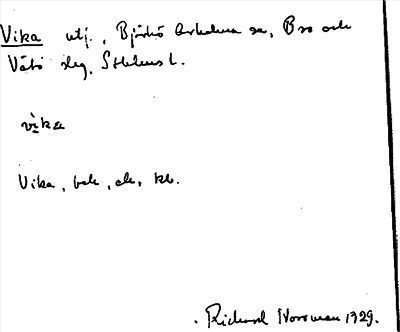 Vika utj., Björkö Arholma sn, Bro och
Vätö slg, Sthlms l.
vìka
Vika, bek, ek, kb.
Rickard Norrman 1929.